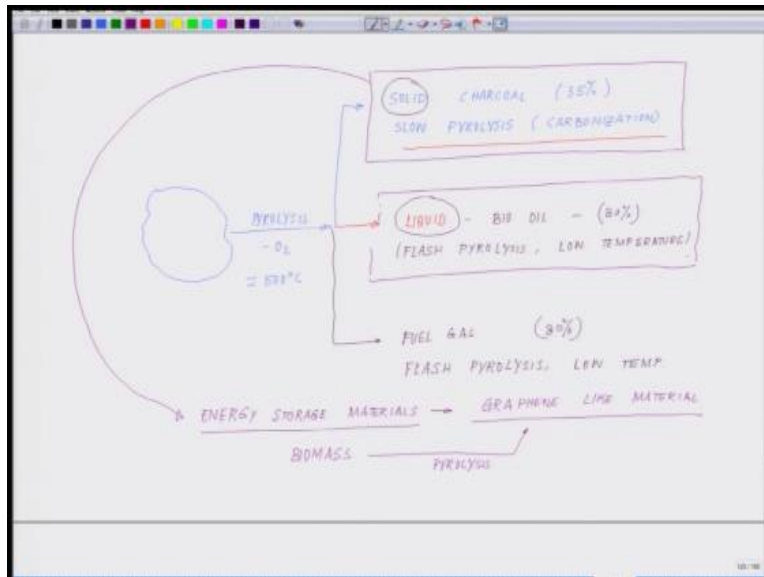 SOLID CHARCOAL (35%)
SLOW PYROLYSIS (CARBONIZATION)
PYROLYSIS
- O₂
LIQUID - BIO OIL - (80%)
(FLASH PYROLYSIS, LOW TEMPERATURE)
FUEL GAS (80%)
FLASH PYROLYSIS, LOW TEMP
ENERGY STORAGE MATERIALS → GRAPHENE LIKE MATERIAL
BIOMASS
PYROLYSIS